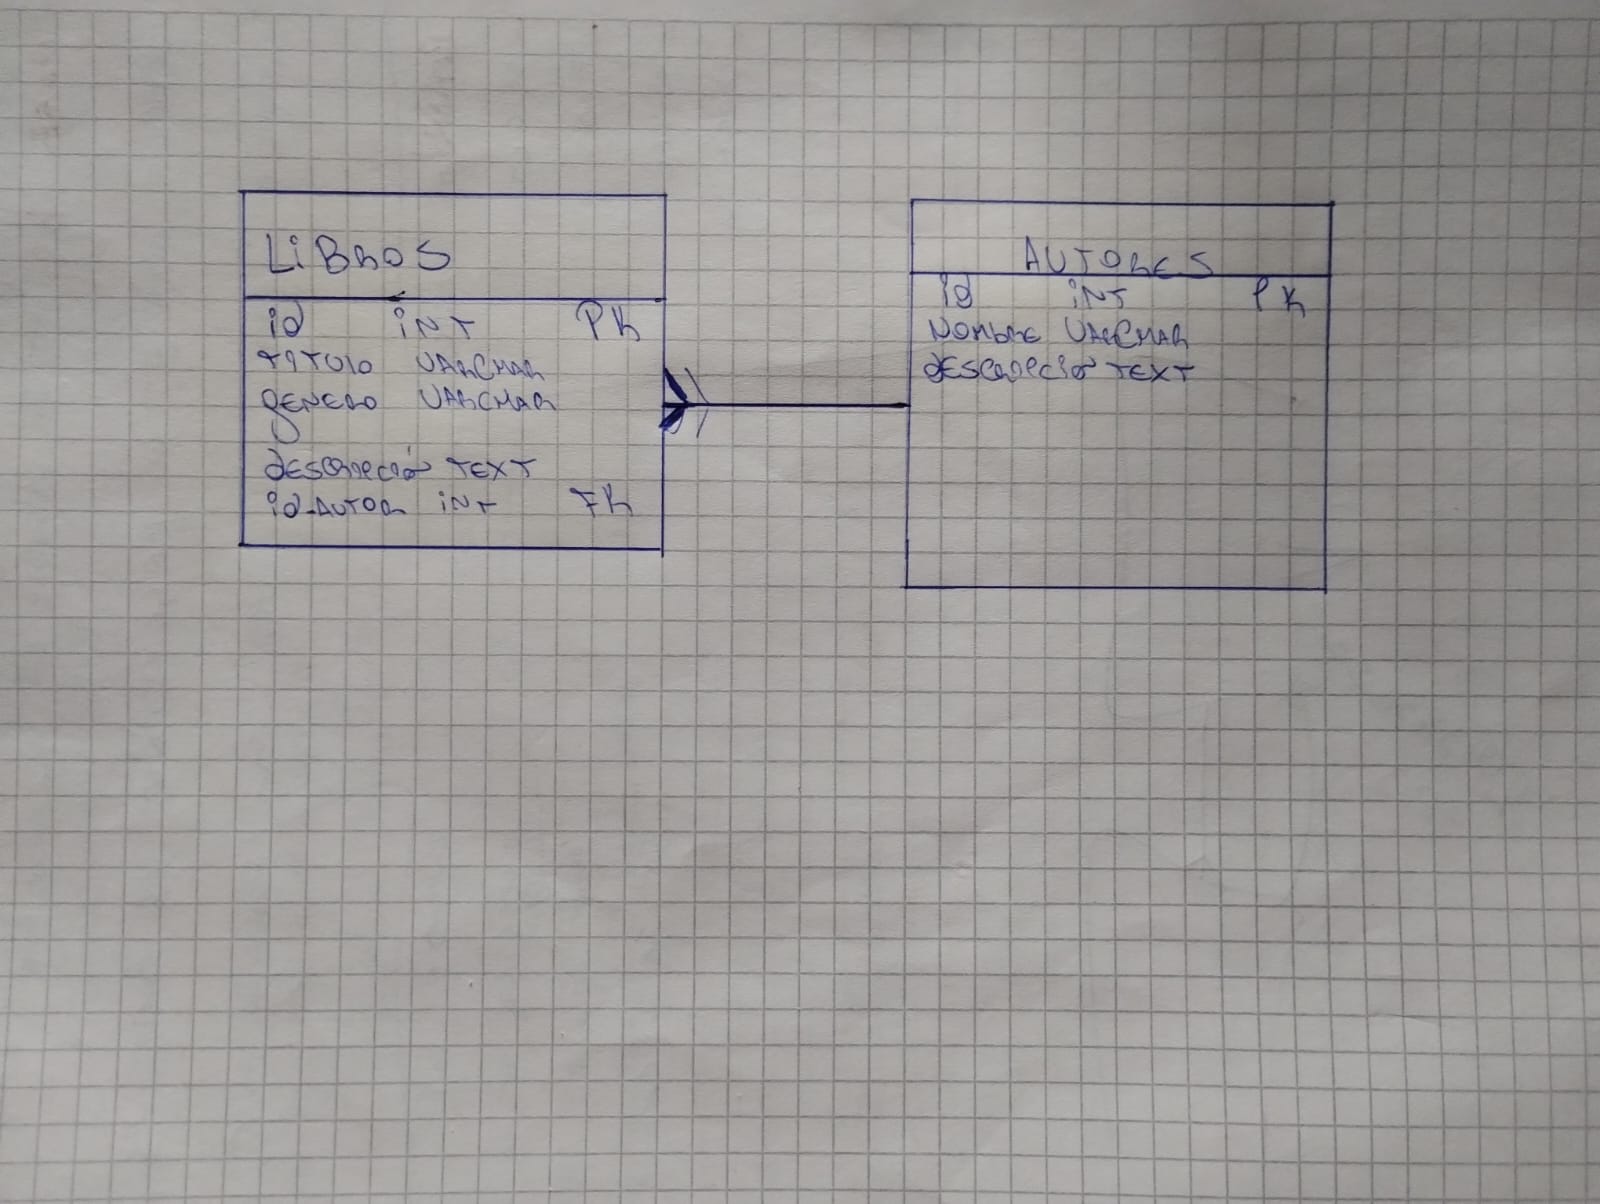 LiBROS
id iNT PK
TITULO VARCHAR
GENERO VARCHAR
DESCRIPCIÓ TEXT
id-AUTOR iNT FK
AUTORES
id iNT PK
NOMBRE VARCHAR
DESCRIPCIÓ TEXT